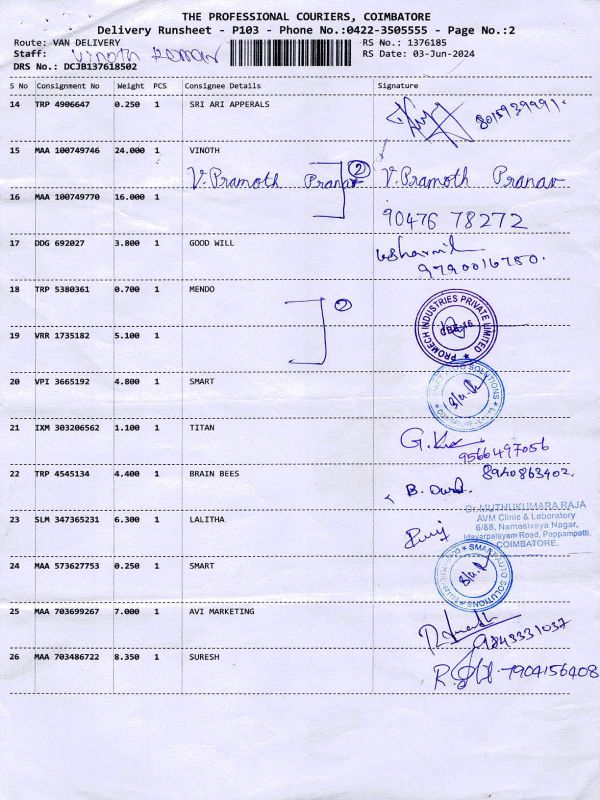 THE PROFESSIONAL COURIERS, COIMBATORE
Delivery Runsheet - P103 - Phone No.:0422-3505555 - Page No.:2
Route: VAN DELIVERY RS No.: 1376185
Staff: Vinoth RS Date: 03-Jun-2024
DRS No.: DCJB137618502
S No Consignment No Weight PCS Consignee Details Signature
14 TRP 4906647 0.250 1 SRI ARI APPERALS 8015939991.
15 MAA 100749746 24.000 1 VINOTH
V. Pramoth Pranav 2 V. Pramoth Pranav
16 MAA 100749770 16.000 1
90476 78272
17 DDG 692027 3.800 1 GOOD WILL
9790016750.
18 TRP 5380361 0.700 1 MENDO
2
PROMECH INDUSTRIES PRIVATE LIMITED
19 VRR 1735182 5.100 1
20 VPI 3665192 4.800 1 SMART
SMART AUTO SOLUTIONS
21 IXM 303206562 1.100 1 TITAN
9566497056
22 TRP 4545134 4.400 1 BRAIN BEES 8940863402.
23 SLM 347365231 6.300 1 LALITHA
Dr.MUTHUKUMARA RAJA
AVM Clinic & Laboratory
6/88, Namasivaya Nagar,
Idayarpalayam Road, Pappampatti,
COIMBATORE.
24 MAA 573627753 0.250 1 SMART
SMART AUTO SOLUTIONS
25 MAA 703699267 7.000 1 AVI MARKETING
9843331037
26 MAA 703486722 8.350 1 SURESH
7904156408